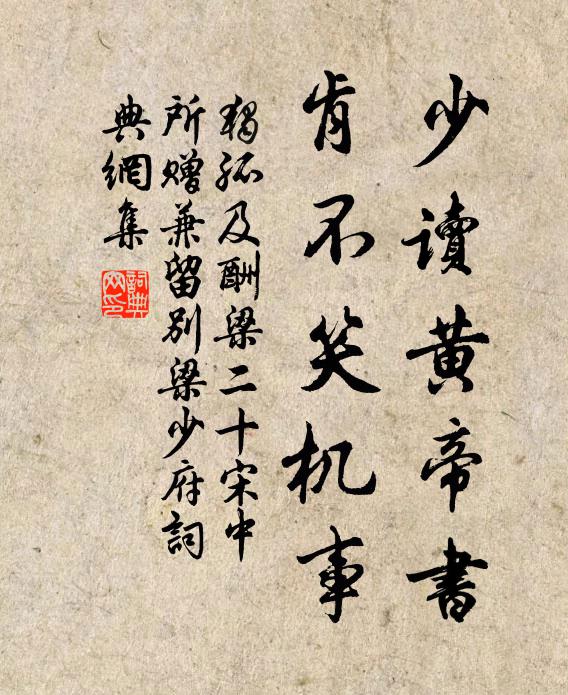 少讀黃帝書
肯不笑机事
獨孤及酬梁二十宋中
所贈兼留別梁少府詞
典網集
詞典
网印